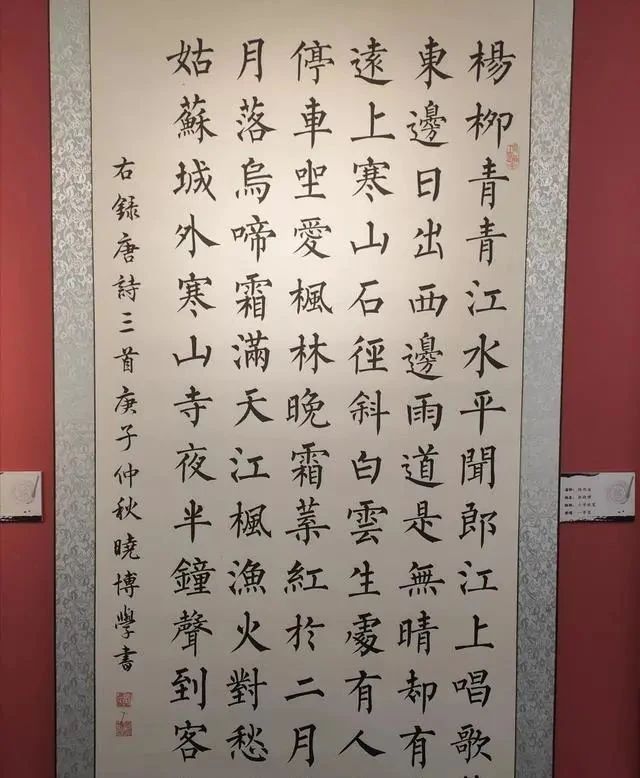 楊柳青青江水平聞郎江上唱歌
東邊日出西邊雨道是無晴却有
遠上寒山石徑斜白雲生處有人
停車坐愛楓林晚霜葉紅於二月
月落烏啼霜滿天江楓漁火對愁
姑蘇城外寒山寺夜半鐘聲到客
右録唐詩三首庚子仲秋曉博學書